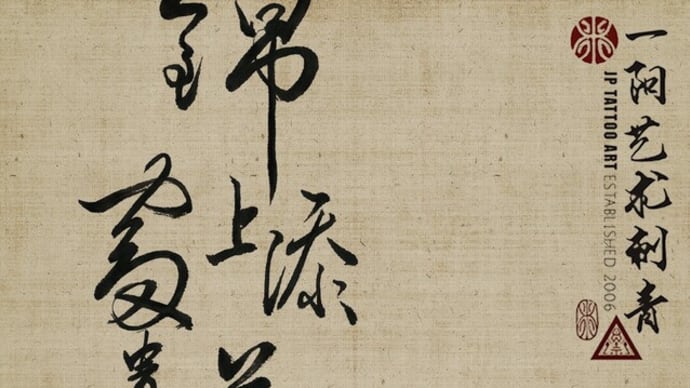 一阳艺术刺青
JP TATTOO ART ESTABLISHED 2006
錦上添
富